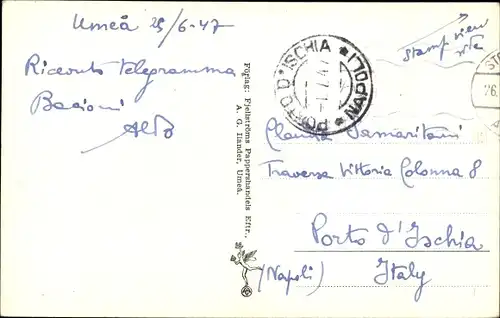 Umeå 25/6-47
Ricevuto telegramma
Bacioni
Aldo
Förlag: Fjellströms Pappershandels Eftr.,
A. G. Hander, Umeå.
PORTO D'ISCHIA * (NAPOLI) *
1.7.47
stamp view
site
STO
26.
Claudia Samaritani
Traversa Vittoria Colonna 8
Porto d'Ischia
(Napoli) Italy